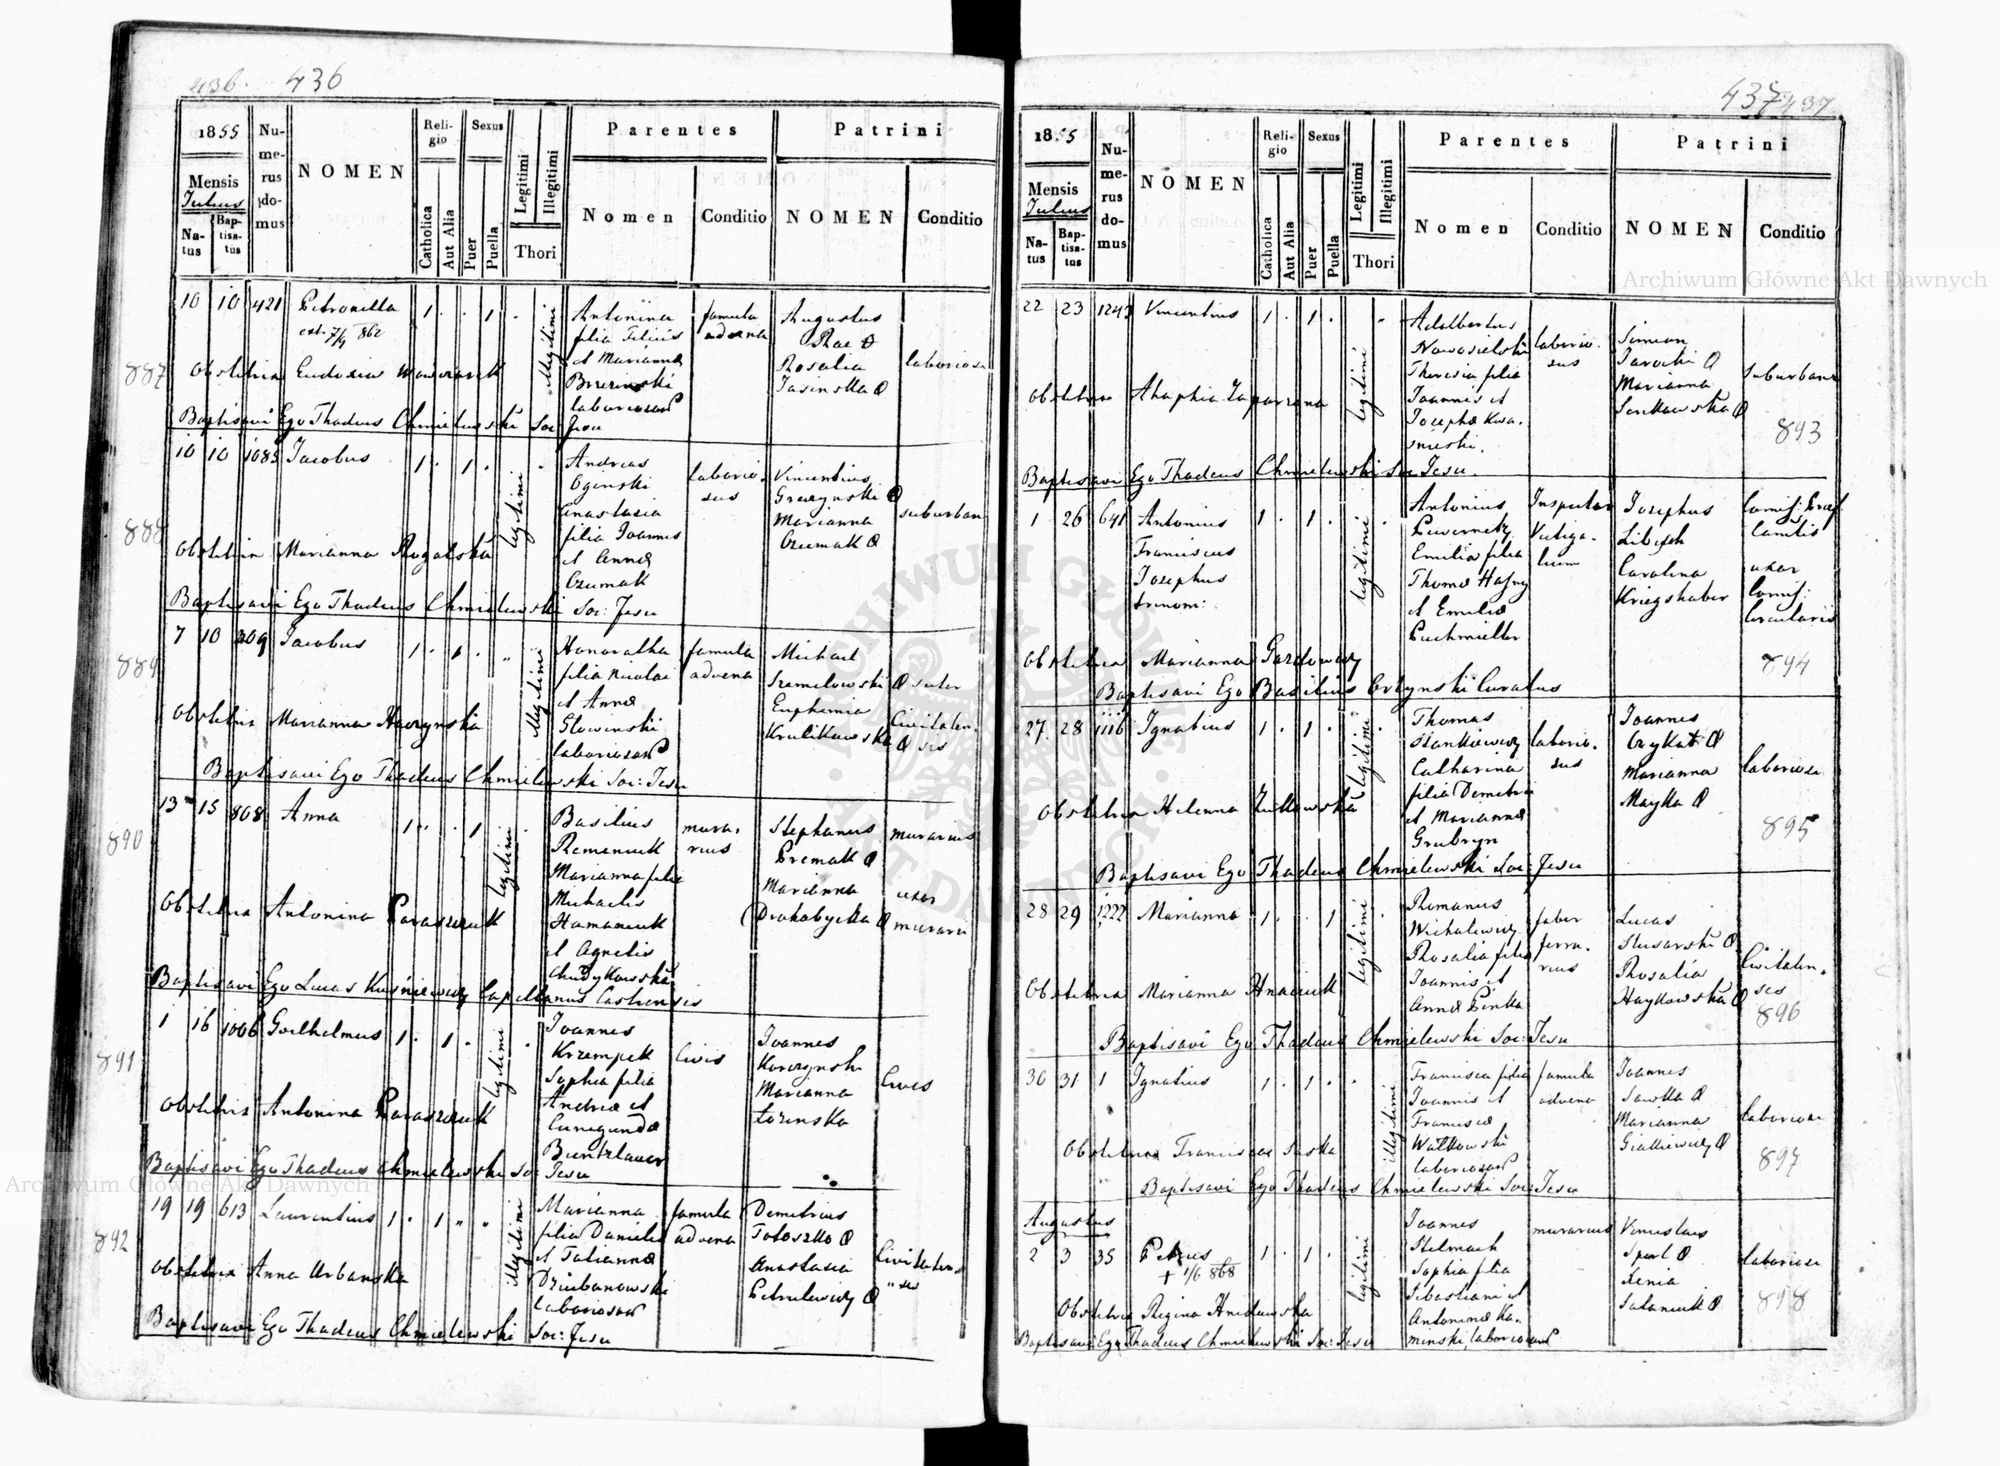 436. 436
1855
Mensis
Julius
Natus
Baptisatus
Numerus domus
NOMEN
Religio
Catholica
Aut Alia
Sexus
Puer
Puella
Legitimi
Illegitimi
Thori
Parentes
Nomen
Conditio
Patrini
NOMEN
Conditio
887
10 10 421 Petronella 1 . . 1 . Illegitimi
ext. 7/9 862
Antonina
filia Felicis
et Marianna
Brzezinski
laboriosor
famula
advena
Augustus
Rosalia
Jasinska
laboriosi
Obstetrix Eudoxia
Baptisavi Ego Thadeus Chmielewski Soc: Jesu
888
10 10 1085 Jacobus 1 . 1 . legitimi .
Andreas
Ogonski
Anastasia
filia Joannis
et Anna
Czumak
laboriosus
Vincentius
Marianna
Czumak
suburbani
Obstetrix Marianna Rogalska
Baptisavi Ego Thadeus Chmielewski Soc: Jesu
889
7 10 209 Jacobus 1 . 1 . " Illegitimi
Honoratha
filia Nicolai
et Anna
Glowinski
laboriosor
famula
advena
Michael
Szemelowski
Euphemia
Krulikowska
sutor
Civitatensis
Obstetrix Marianna
Baptisavi Ego Thadeus Chmielewski Soc: Jesu
890
13 15 808 Anna 1 . . 1 legitimi .
Basilius
Romaniuk
Marianna filia
Michaelis
Hamaniuk
et Agnetis
murarius
Stephanus
Marianna
Drohobycka
murarius
uxor
murarii
Obstetrix Antonina Paraszczuk
Baptisavi Ego Lucas Kuśniewicz Capellanus Castrensis
891
1 16 1006 Guilhelmus 1 . 1 . legitimi .
Joannes
Krzempek
Sophia filia
Andrea et
Cunegunda
Buntzlauer
Civis
Joannes
Korczynski
Marianna
Łozinska
Cives
Obstetrix Antonina Paraszczuk
Baptisavi Ego Thadeus Chmielewski Soc: Jesu
892
19 19 613 Laurentius 1 . 1 " " illegitimi
Marianna
filia Danielis
et Tatianna
Dziubanowski
laboriosor
famula
advena
Demetrius
Anastasia
Petrulewicz
Civitatensis
Obstetrix Anna Urbanska
Baptisavi Ego Thadeus Chmielewski Soc: Jesu
437 437
1855
Mensis
Julius
Natus
Baptisatus
Numerus domus
NOMEN
Religio
Catholica
Aut Alia
Sexus
Puer
Puella
Legitimi
Illegitimi
Thori
Parentes
Nomen
Conditio
Patrini
NOMEN
Conditio
22 23 1243 Vincentius 1 . 1 . legitimi "
Adalbertus
Nowosielski
Theresia filia
Joannis et
Josepha Kwasnieski.
laboriosus
Simeon
Jarocki
Marianna
Senkowska
suburbani
Obstetrix Ahaphia Zaparzona
893
Baptisavi Ego Thadeus Chmielewski Soc: Jesu.
1 26 641 Antonius 1 . 1 . legitimi .
Franciscus
Josephus
trinom:
Antonius
Emilia filia
et Emilia
Puchmiller
Inspector
Vectigalium
Josephus
Libisch
Carolina
Kriegshaber
uxor
Comiss:
Circularis
Obstetrix Marianna
894
Baptisavi Ego Basilius Ortynski Curatus
27 28 1116 Ignatius 1 . 1 . legitimi .
Thomas
Stankiewicz
Catharina
filia Demetrii
et Marianna
laboriosus
Joannes
Marianna
Mayka
laboriosi
Obstetrix Helenna Zulkowska
895
Baptisavi Ego Thadeus Chmielewski Soc: Jesu
28 29 1222 Marianna 1 . . 1 legitimi .
Romanus
Michalewicz
Rosalia filia
Joannis et
Anna
faber
ferrarius
Lucas
Slusarski
Rosalia
Haykowska
Civitatensis
Obstetrix Marianna Hnaciuk
896
Baptisavi Ego Thadeus Chmielewski Soc: Jesu
30 31 1 Ignatius 1 . 1 . " illegitimi
Francisca filia
Joannis et
Francisca
Walkowski
laboriosor
famula
advena
Joannes
Sawka
Marianna
laboriosi
Obstetrix Francisca Saska
897
Baptisavi Ego Thadeus Chmielewski Soc: Jesu
Augustus
2 3 35 Petrus 1 . 1 . legitimi
+ 1/6 868
Joannes
Stelmach
Sophia filia
Sebastiani et
Antonina Kaminski, laboriosor
murarius
Xenia
laboriosi
Obstetrix Regina
898
Baptisavi Ego Thadeus Chmielewski Soc: Jesu
Archiwum Główne Akt Dawnych
Archiwum Główne Akt Dawnych
ARCHIWUM GŁÓWNE AKT DAWNYCH